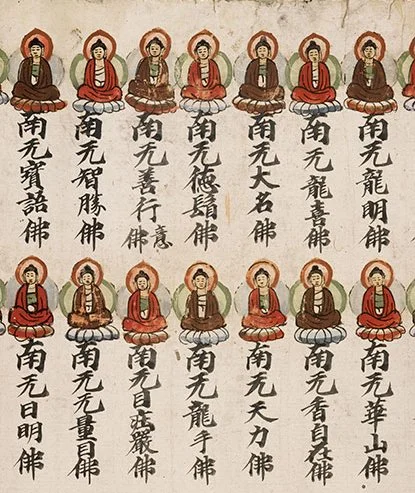 南无龍明佛
南无龍喜佛
南无大名佛
南无徳鬘佛
南无善行意佛
南无智勝佛
南无寶語佛
南无華山佛
南无香自在佛
南无天力佛
南无龍手佛
南无目莊嚴佛
南无无量目佛
南无日明佛